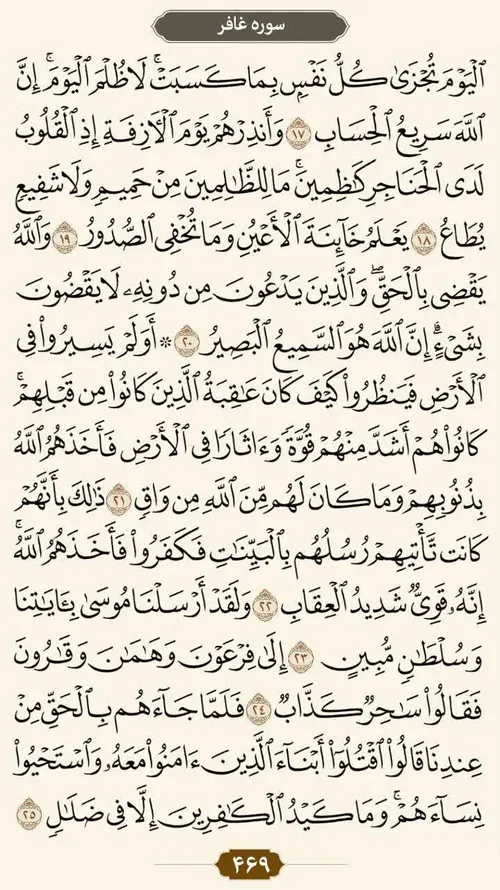 سوره غافر
ٱلۡيَوۡمَ تُجۡزَىٰ كُلُّ نَفۡسِۭ بِمَا كَسَبَتۡۚ لَا ظُلۡمَ ٱلۡيَوۡمَۚ إِنَّ
ٱللَّهَ سَرِيعُ ٱلۡحِسَابِ ١٧ وَأَنذِرۡهُمۡ يَوۡمَ ٱلۡأٓزِفَةِ إِذِ ٱلۡقُلُوبُ
لَدَى ٱلۡحَنَاجِرِ كَٰظِمِينَۚ مَا لِلظَّٰلِمِينَ مِنۡ حَمِيمٖ وَلَا شَفِيعٖ
يُطَاعُ ١٨ يَعۡلَمُ خَآئِنَةَ ٱلۡأَعۡيُنِ وَمَا تُخۡفِي ٱلصُّدُورُ ١٩ وَٱللَّهُ
يَقۡضِي بِٱلۡحَقِّۖ وَٱلَّذِينَ يَدۡعُونَ مِن دُونِهِۦ لَا يَقۡضُونَ
بِشَيۡءٍۗ إِنَّ ٱللَّهَ هُوَ ٱلسَّمِيعُ ٱلۡبَصِيرُ ٢٠ ۞ أَوَلَمۡ يَسِيرُواْ فِي
ٱلۡأَرۡضِ فَيَنظُرُواْ كَيۡفَ كَانَ عَٰقِبَةُ ٱلَّذِينَ كَانُواْ مِن قَبۡلِهِمۡۚ
كَانُواْ هُمۡ أَشَدَّ مِنۡهُمۡ قُوَّةٗ وَءَاثَارٗا فِي ٱلۡأَرۡضِ فَأَخَذَهُمُ ٱللَّهُ
بِذُنُوبِهِمۡ وَمَا كَانَ لَهُم مِّنَ ٱللَّهِ مِن وَاقٖ ٢١ ذَٰلِكَ بِأَنَّهُمۡ
كَانَت تَّأۡتِيهِمۡ رُسُلُهُم بِٱلۡبَيِّنَٰتِ فَكَفَرُواْ فَأَخَذَهُمُ ٱللَّهُۚ
إِنَّهُۥ قَوِيّٞ شَدِيدُ ٱلۡعِقَابِ ٢٢ وَلَقَدۡ أَرۡسَلۡنَا مُوسَىٰ بِـَٔايَٰتِنَا
وَسُلۡطَٰنٖ مُّبِينٍ ٢٣ إِلَىٰ فِرۡعَوۡنَ وَهَٰمَٰنَ وَقَٰرُونَ
فَقَالُواْ سَٰحِرٞ كَذَّابٞ ٢٤ فَلَمَّا جَآءَهُم بِٱلۡحَقِّ مِنۡ
عِندِنَا قَالُواْ ٱقۡتُلُوٓاْ أَبۡنَآءَ ٱلَّذِينَ ءَامَنُواْ مَعَهُۥ وَٱسۡتَحۡيُواْ
نِسَآءَهُمۡۚ وَمَا كَيۡدُ ٱلۡكَٰفِرِينَ إِلَّا فِي ضَلَٰلٖ ٢٥
۴۶۹